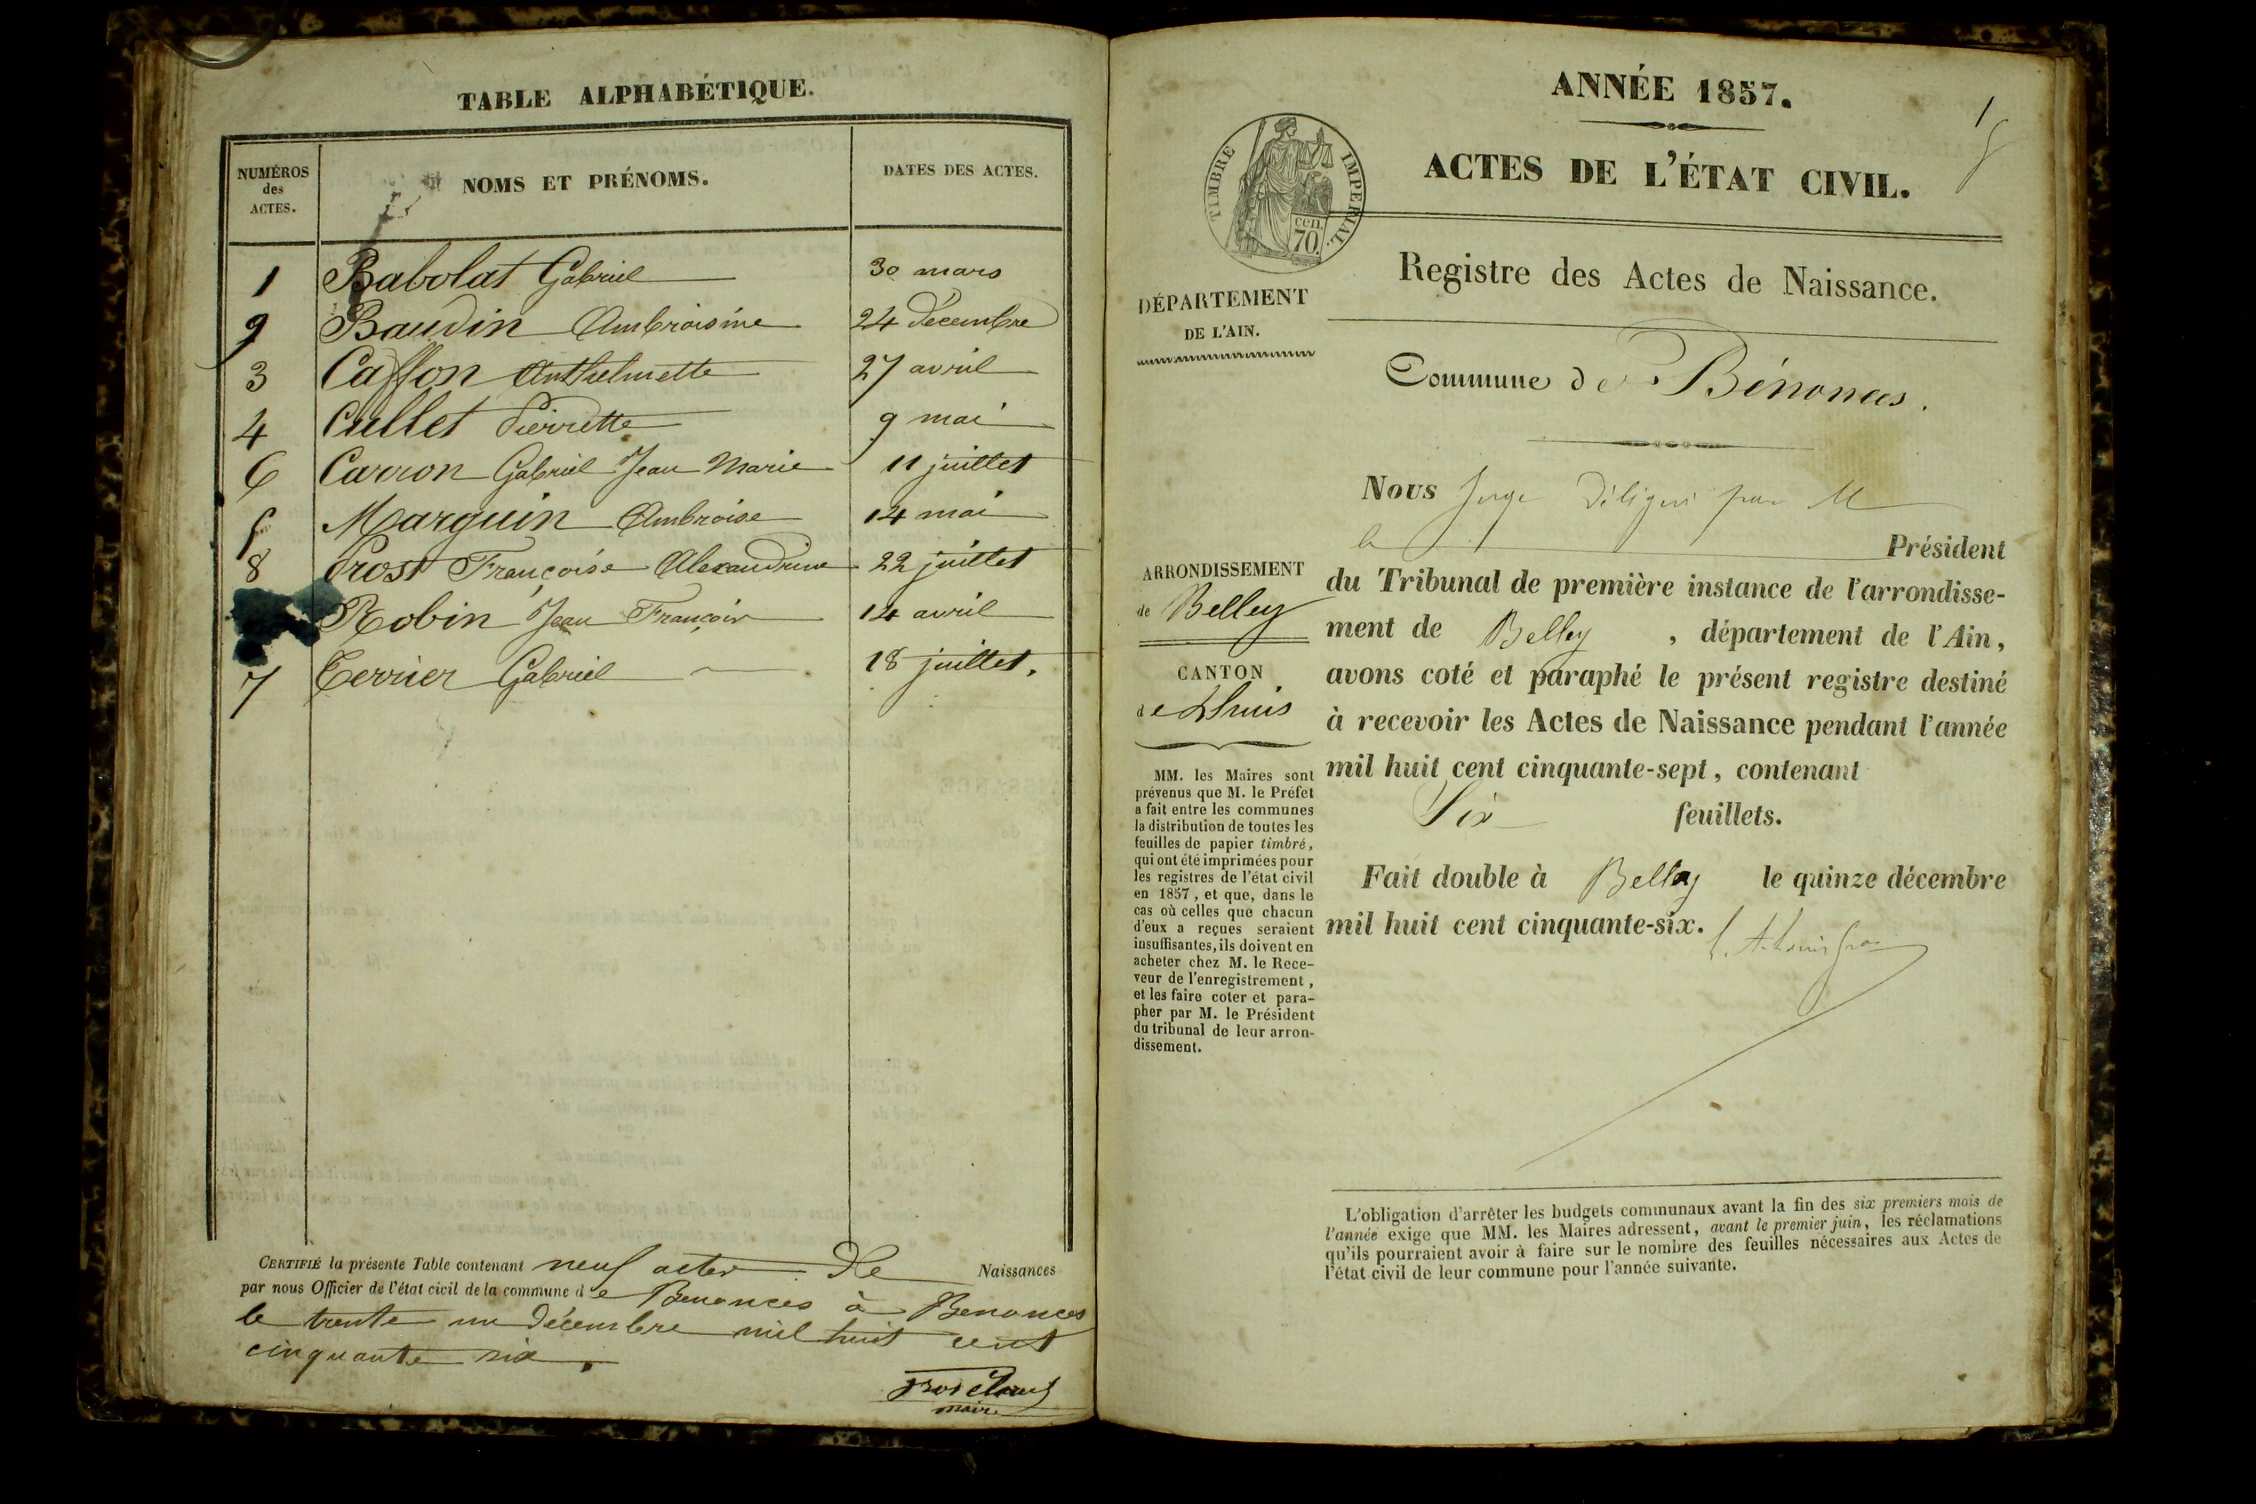 TABLE ALPHABÉTIQUE.
NUMÉROS
des
ACTES.
NOMS ET PRÉNOMS.
DATES DES ACTES.
1 Babolat Gabriel 30 mars
9 Baudin Ambroisine 24 décembre
3 Caffon Anthelmette 27 avril
4 Cullet Pierrette 9 mai
6 Carron Gabriel Jean Marie 11 juillet
5 Marguin Ambroise 14 mai
8 Prost Françoise Alexandrine 22 juillet
Robin Jean François 14 avril
7 Terrier Gabriel 18 juillet.
CERTIFIÉ la présente Table contenant neuf actes De Naissances
par nous Officier de l'état civil de la commune de Benonces à Benonces
le trente un décembre mil huit cent
cinquante six.
maire
ANNÉE 1857.
1
ACTES DE L'ÉTAT CIVIL.
TIMBRE IMPERIAL.
cen.
70
Registre des Actes de Naissance.
DÉPARTEMENT
DE L'AIN.
Commune de Bénonces.
ARRONDISSEMENT
de Belley
CANTON
de Lhuis
MM. les Maires sont
prévenus que M. le Préfet
a fait entre les communes
la distribution de toutes les
feuilles de papier timbré,
qui ont été imprimées pour
les registres de l'état civil
en 1857, et que, dans le
cas où celles que chacun
d'eux a reçues seraient
insuffisantes, ils doivent en
acheter chez M. le Rece-
veur de l'enregistrement,
et les faire coter et para-
pher par M. le Président
du tribunal de leur arron-
dissement.
Nous Juge délégué par M
le Président
du Tribunal de première instance de l'arrondisse-
ment de Belley, département de l'Ain,
avons coté et paraphé le présent registre destiné
à recevoir les Actes de Naissance pendant l'année
mil huit cent cinquante-sept, contenant
Six feuillets.
Fait double à Belley le quinze décembre
mil huit cent cinquante-six.
L'obligation d'arrêter les budgets communaux avant la fin des six premiers mois de
l'année exige que MM. les Maires adressent, avant le premier juin, les réclamations
qu'ils pourraient avoir à faire sur le nombre des feuilles nécessaires aux Actes de
l'état civil de leur commune pour l'année suivante.